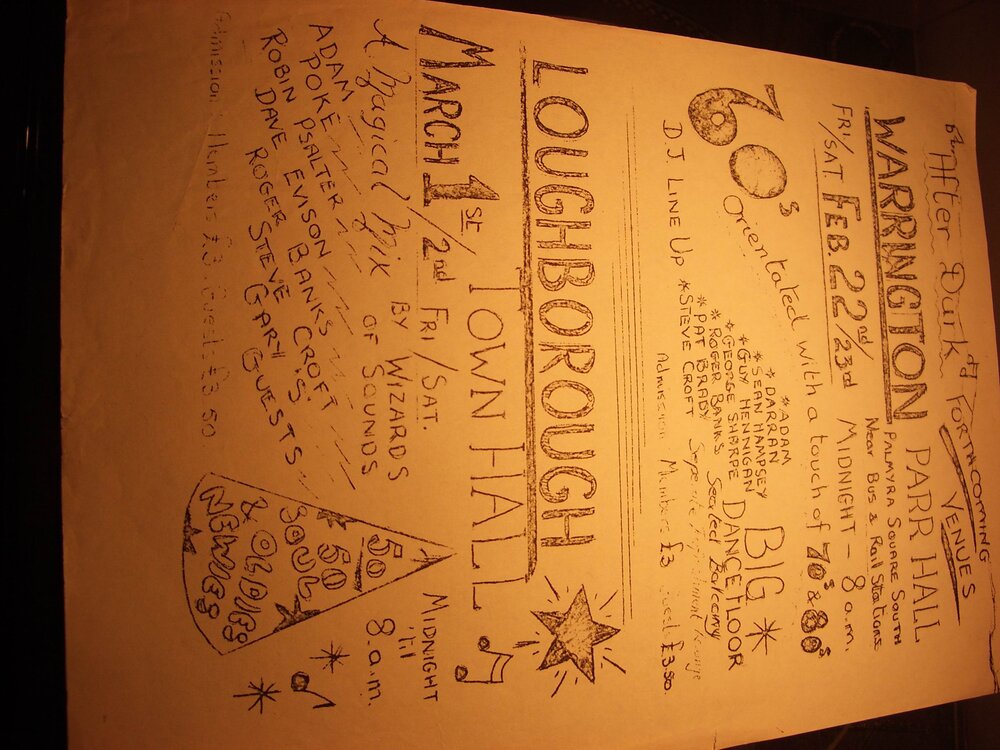 After Dark
FORTHCOMING
VENUES
WARRINGTON PARR HALL
PALMYRA SQUARE SOUTH
Near Bus & Rail Stations
FRI/SAT FEB. 22nd/23rd MIDNIGHT - 8 a.m.
60s Orientated with a touch of 70s & 80s
D.J. LINE UP
* ADAM
* DARRAN
* SEAN HAMPSEY
* GUY HENNIGAN
* GEORGE SHARPE
* ROGER BANKS
* PAT BRADY
* STEVE CROFT
BIG *
DANCE FLOOR
Seated Balcony
Admission Members £3 £3.50.
LOUGHBOROUGH
TOWN HALL
MARCH 1st/2nd FRI/SAT.
MIDNIGHT
'til
8.a.m.
A Magical Mix BY WIZARDS
OF SOUNDS
ADAM
POKE
PSALTER
EVISON
BANKS
CROFT
ROBIN DAVE ROGER STEVE GARY GUESTS
Admission: Members £3 Guests £3.50
50/50
SOUL
& OLDIES
NEWIES